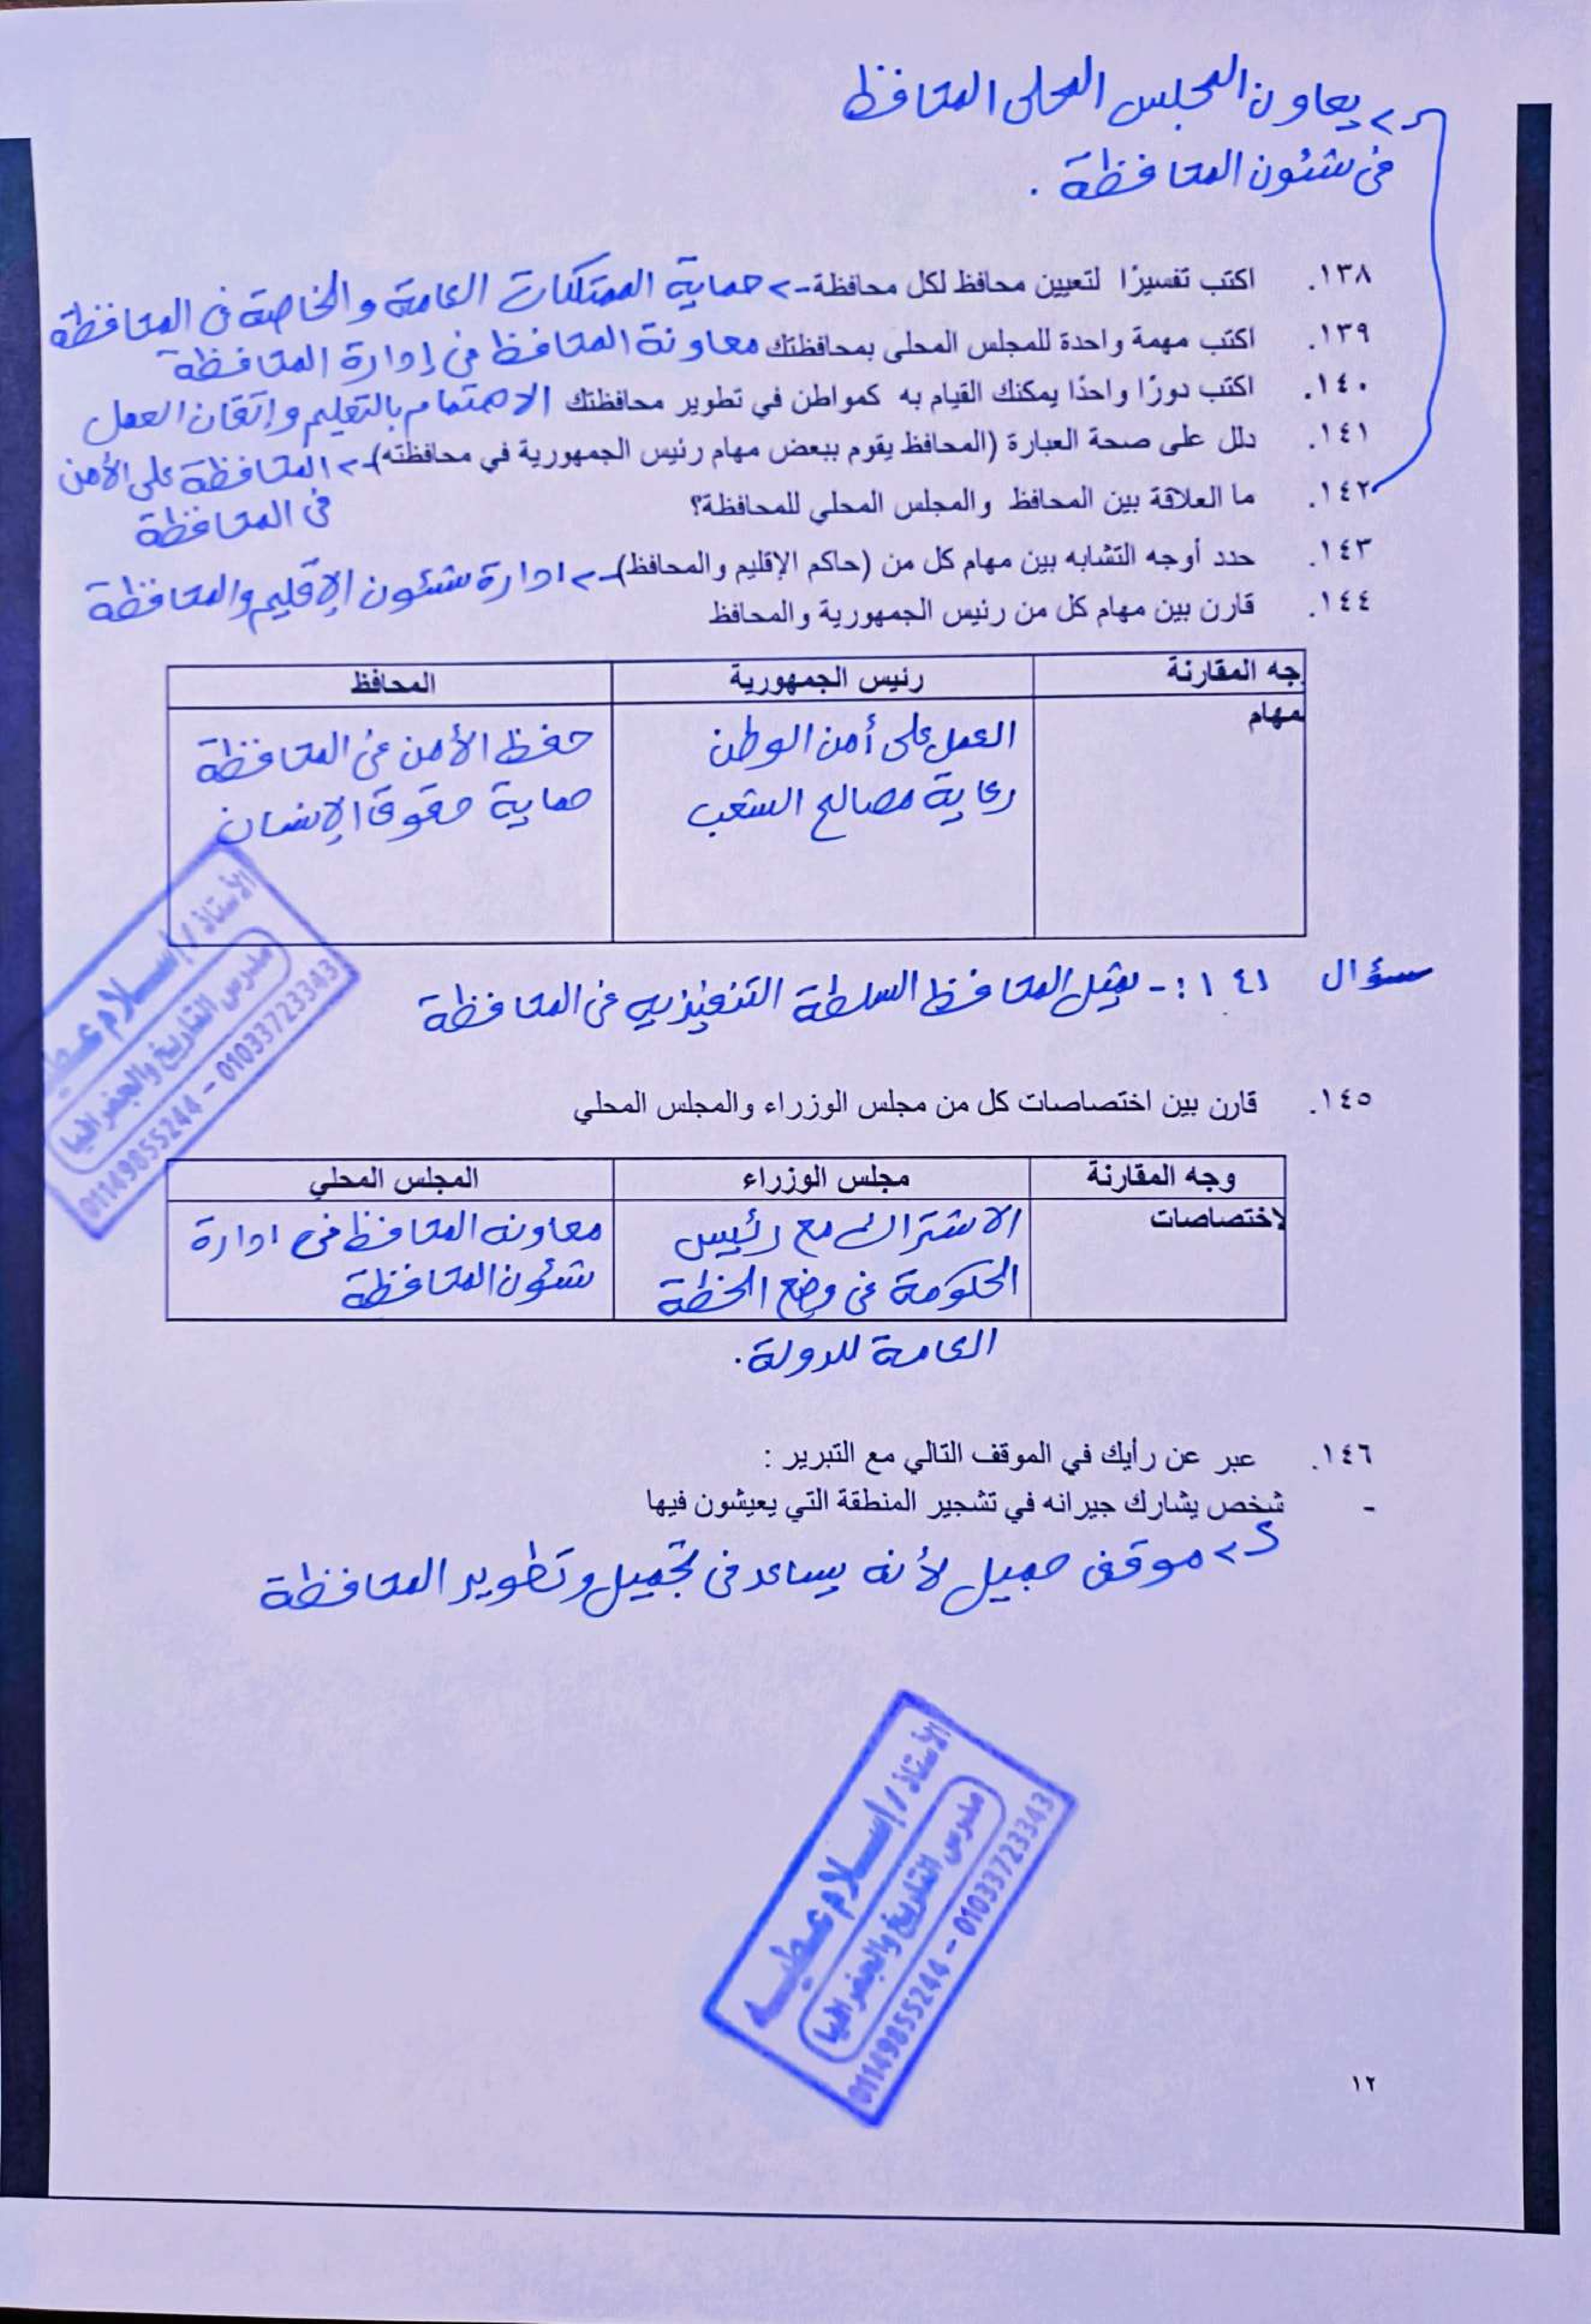 يعاون المجلس المحلى المحافظ
فى شئون المحافظة .
١٣٨. اكتب تفسيرًا لتعيين محافظ لكل محافظة -> حماية الممتلكات العامة والخاصة فى المحافظة
١٣٩. اكتب مهمة واحدة للمجلس المحلى بمحافظتك معاونة المحافظ فى إدارة المحافظة
١٤٠. اكتب دورًا واحدًا يمكنك القيام به كمواطن في تطوير محافظتك الاهتمام بالتعليم وإتقان العمل
١٤١. دلل على صحة العبارة (المحافظ يقوم ببعض مهام رئيس الجمهورية في محافظته) -> المحافظة على الأمن
فى المحافظة
١٤٢. ما العلاقة بين المحافظ والمجلس المحلي للمحافظة؟
١٤٣. حدد أوجه التشابه بين مهام كل من (حاكم الإقليم والمحافظ) -> ادارة شئون الإقليم والمحافظة
١٤٤. قارن بين مهام كل من رئيس الجمهورية والمحافظ
جه المقارنة رئيس الجمهورية المحافظ
مهام العمل على أمن الوطن حفظ الأمن فى المحافظة
رعاية مصالح الشعب حماية حقوق الإنسان
سؤال ١٤١ :- يمثل المحافظ السلطة التنفيذيه فى المحافظة
الأستاذ / إسلام عطيه
مدرس التاريخ والجغرافيا
01149855244 - 01033723343
١٤٥. قارن بين اختصاصات كل من مجلس الوزراء والمجلس المحلي
وجه المقارنة مجلس الوزراء المجلس المحلي
لاختصاصات الاشتراك مع رئيس معاونه المحافظ فى ادارة
الحكومة فى وضع الخطة شئون المحافظة
العامة للدولة.
١٤٦. عبر عن رأيك في الموقف التالي مع التبرير :
- شخص يشارك جيرانه في تشجير المنطقة التي يعيشون فيها
موقف جميل لأنه يساعد فى تجميل وتطوير المحافظة
الأستاذ / إسلام عطيه
مدرس التاريخ والجغرافيا
01149855244 - 01033723343
١٢